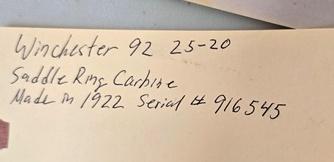 Winchester 92 25-20
Saddle Ring Carbine
Made in 1922 Serial # 916545